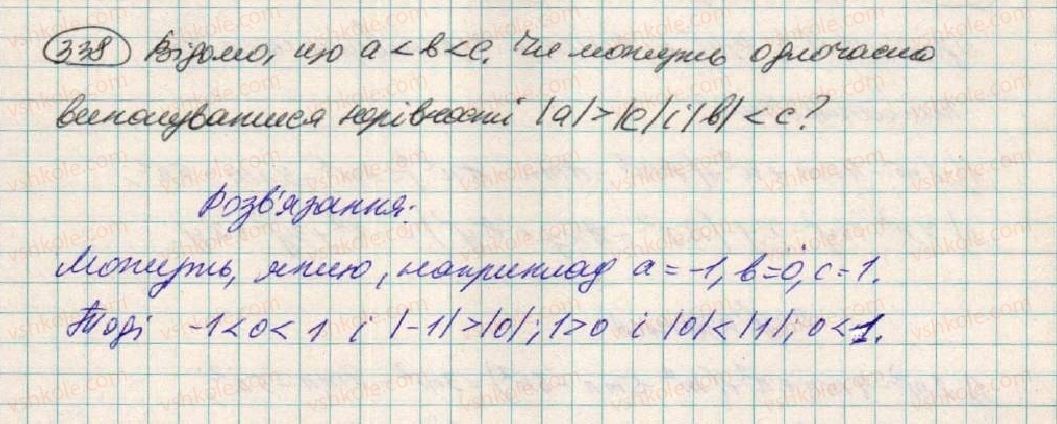 338 Відомо, що a < b < c. Чи можуть одночасно
виконуватися нерівності |a| > |c| і |b| < c?
Розв'язання:
Можуть, якщо, наприклад a = -1, b = 0, c = 1.
Тоді -1 < 0 < 1 і |-1| > |0|; 1 > 0 і |0| < |1|; 0 < 1.